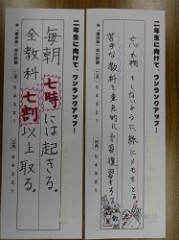 二年生に向けて、ワンランクアップ!
忘れ物をしないように紙にメモをとる。
苦手な教科を重点的に予習復習をする。
二年生に向けて、ワンランクアップ!
毎朝七時には起きる。
全教科七割以上取る。